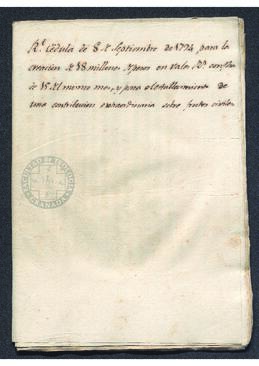 Rl. Cedula de 8 de Septiembre de 1794 para la
creacion de 18 millones de pesos en vales Rs. con fha
de 15 del mismo mes, y para el establecimiento de
una contribucion extraordinaria sobre frutos civiles